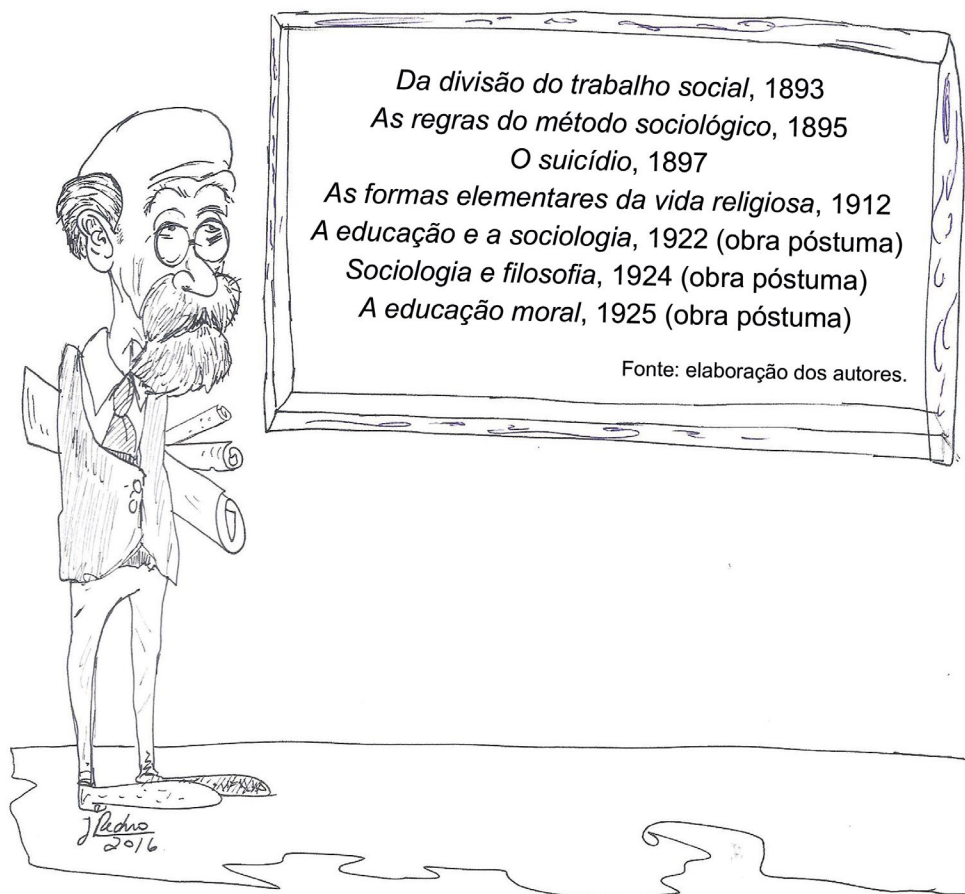 Da divisão do trabalho social, 1893
As regras do método sociológico, 1895
O suicídio, 1897
As formas elementares da vida religiosa, 1912
A educação e a sociologia, 1922 (obra póstuma)
Sociologia e filosofia, 1924 (obra póstuma)
A educação moral, 1925 (obra póstuma)
Fonte: elaboração dos autores.
J Pedro
2016